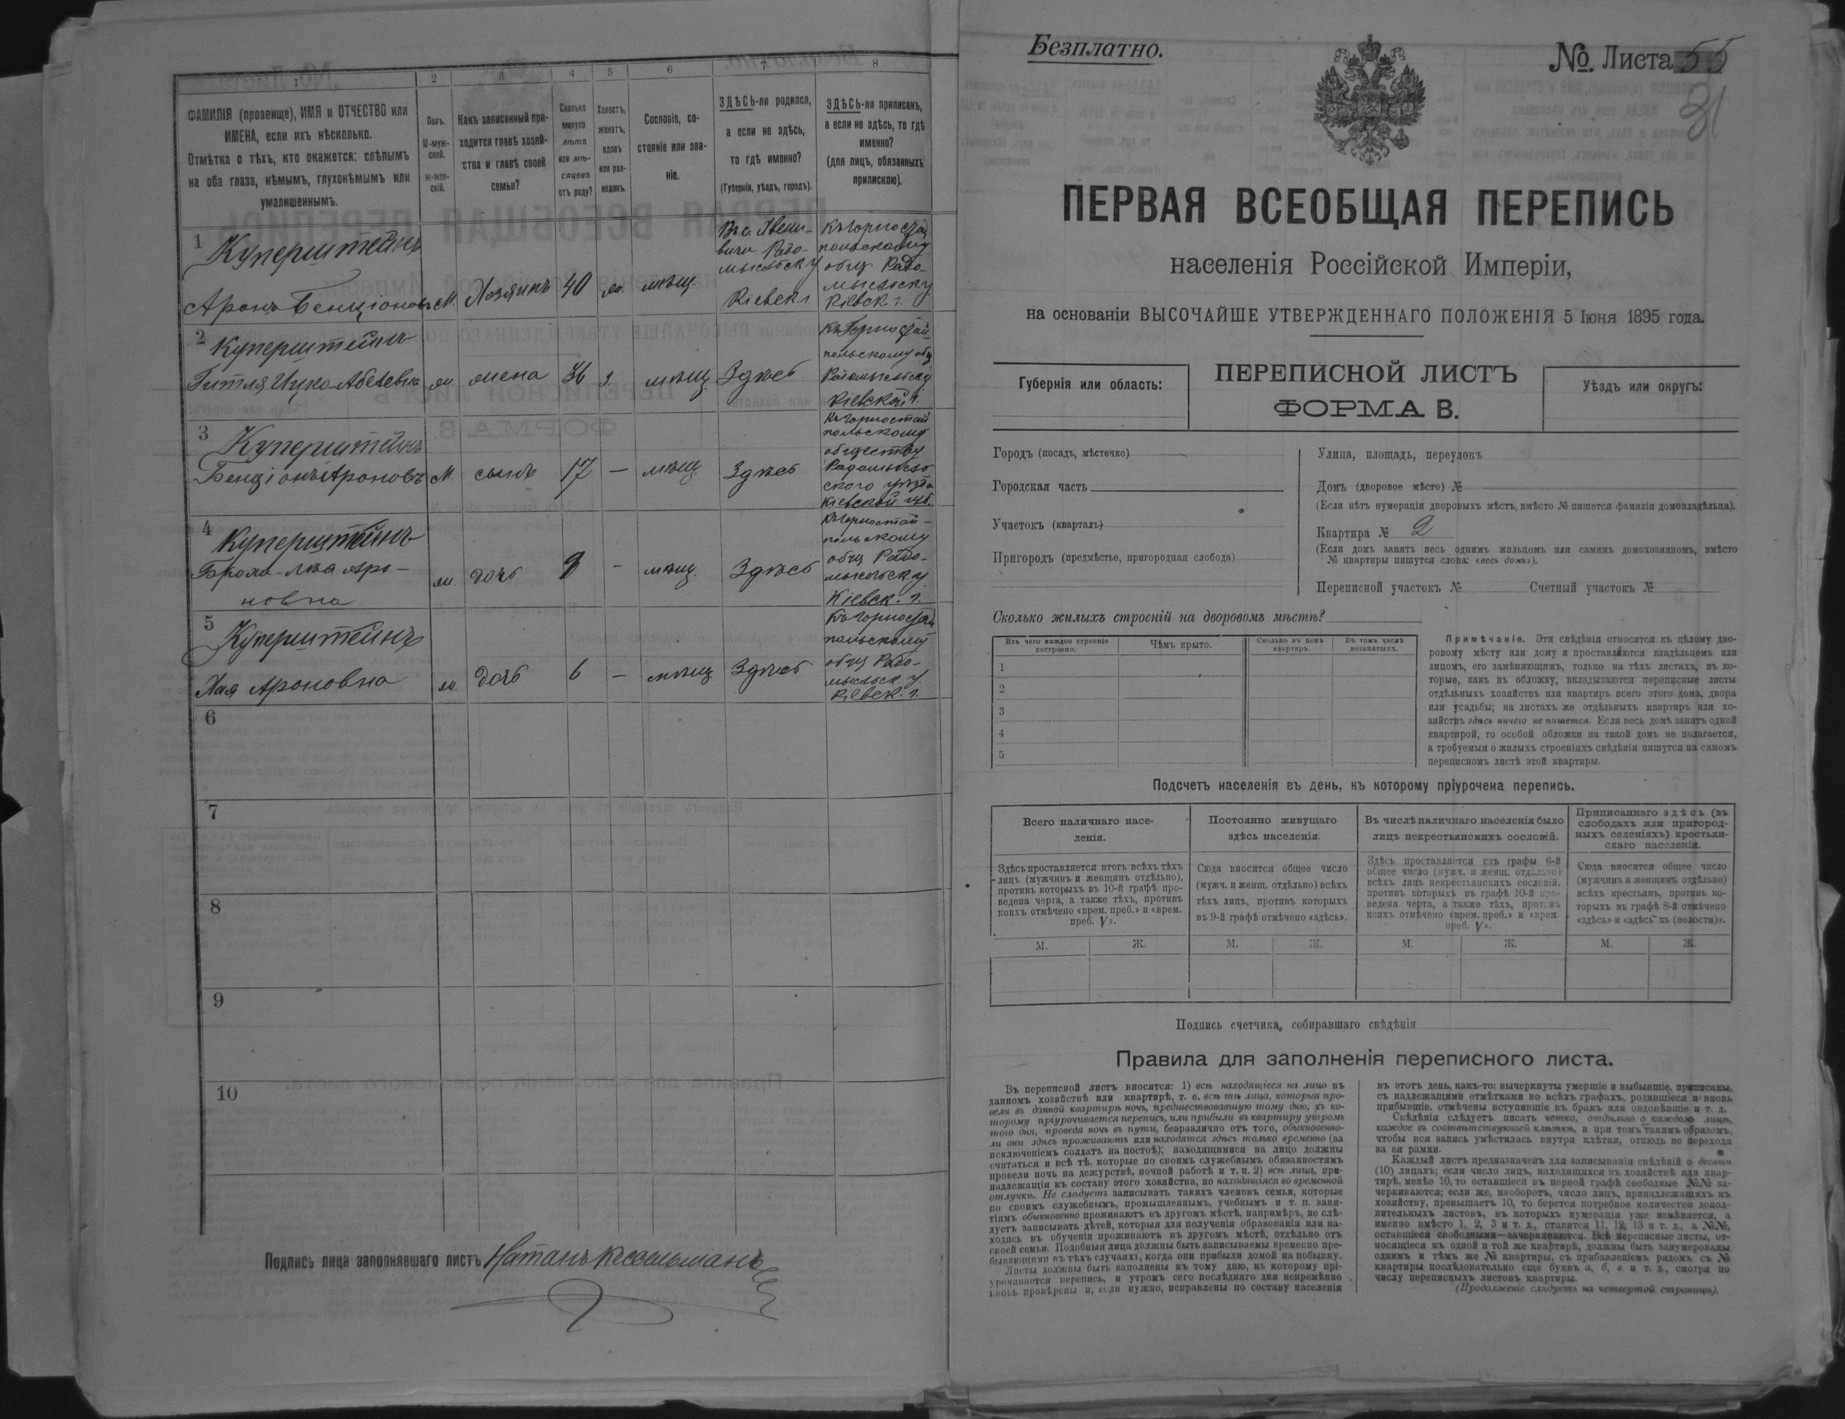 2 3 4 5 6 7 8
ФАМИЛІЯ (прозвище), ИМЯ и ОТЧЕСТВО или
ИМЕНА, если ихъ нѣсколько.
Отмѣтка о тѣхъ, кто окажется: слѣпымъ
на оба глаза, нѣмымъ, глухонѣмымъ или
умалишеннымъ.
Полъ.
М-муж-
ской.
Ж-жен-
скій.
Какъ записанный при-
ходится главѣ хозяй-
ства и главѣ своей
семьи?
Сколько
минуло
лѣтъ
или мѣ-
сяцевъ
отъ роду?
Холостъ,
женатъ,
вдовъ
или раз-
веденъ.
Сословіе, со-
стояніе или зва-
ніе.
ЗДѢСЬ-ли родился,
а если не здѣсь,
то гдѣ именно?
(Губернія, уѣздъ, городъ).
ЗДѢСЬ-ли приписанъ,
а если не здѣсь, то гдѣ
именно?
(для лицъ, обязанныхъ
припискою).
1
Куперштейнъ
Аронъ Бенціоновъ
М.
Хозяинъ
40
мѣщ.
Радо-
Кіевск г
Къ Горностай
польскому
общ Радо-
мысльск у
Кіевск. г.
2
Куперштейнъ
жена
36
з.
мѣщ
Здѣсь
Къ Горностай-
польскому общ
Кіевской г.
3
Куперштейнъ
Бенціонъ Ароновъ
М
сынъ
17
—
мѣщ.
Здѣсь
Къ Горностай
польскому
обществу
Радомысль
ского уѣзда
Кіевской губ.
4
Куперштейнъ
Аро-
новна
дочь
9
-
мѣщ.
Здѣсь
Къ Горностай-
польскому
общ Радо-
мысльск у
Кіевск. г.
5
Куперштейнъ
Хая Ароновна
дочь
6
—
мѣщ
Здѣсь
Къ Горностай
польскому
общ Радо-
мысльск у
Кіевск. г.
6
7
8
9
10
Подпись лица заполнявшаго листъ Натанъ
Безплатно.
№ Листа 55
31
ПЕРВАЯ ВСЕОБЩАЯ ПЕРЕПИСЬ
населенія Россійской Имперіи,
на основаніи ВЫСОЧАЙШЕ УТВЕРЖДЕННАГО ПОЛОЖЕНІЯ 5 Іюня 1895 года.
Губернія или область:
ПЕРЕПИСНОЙ ЛИСТЪ
ФОРМА В.
Уѣздъ или округъ:
Городъ (посадъ, мѣстечко)
Городская часть
Участокъ (кварталъ)
Пригородъ (предмѣстье, пригородная слобода)
Улица, площадь, переулокъ
Домъ (дворовое мѣсто) №
(Если нѣтъ нумераціи дворовыхъ мѣстъ, вмѣсто № пишется фамилія домовладѣльца).
Квартира № 2
(Если домъ занятъ весь однимъ жильцомъ или самимъ домохозяиномъ, вмѣсто
№ квартиры пишутся слова: «весь домъ»).
Переписной участокъ № Счетный участокъ №
Сколько жилыхъ строеній на дворовомъ мѣстѣ?
Изъ чего каждое строеніе
построено.
Чѣмъ крыто.
Сколько въ немъ
квартиръ.
Въ томъ числѣ
незанятыхъ.
1
2
3
4
5
Примѣчаніе. Эти свѣдѣнія относятся къ цѣлому дво-
ровому мѣсту или дому и проставляются владѣльцемъ или
лицомъ, его замѣняющимъ, только на тѣхъ листахъ, въ ко-
торые, какъ въ обложку, вкладываются переписные листы
отдѣльныхъ хозяйствъ или квартиръ всего этого дома, двора
или усадьбы; на листахъ же отдѣльныхъ квартиръ или хо-
зяйствъ здѣсь ничего не пишется. Если весь домъ занятъ одной
квартирой, то особой обложки на такой домъ не полагается,
а требуемыя о жилыхъ строеніяхъ свѣдѣнія пишутся на самомъ
переписномъ листѣ этой квартиры.
Подсчетъ населенія въ день, къ которому пріурочена перепись.
Всего наличнаго насе-
ленія.
Здѣсь проставляется итогъ всѣхъ тѣхъ
лицъ (мужчинъ и женщинъ отдѣльно),
противъ которыхъ въ 10-й графѣ про-
ведена черта, а также тѣхъ, противъ
коихъ отмѣчено «врем. преб.» и «врем.
преб. V».
М. Ж.
Постоянно живущаго
здѣсь населенія.
Сюда вносится общее число
(мужч. и женщ. отдѣльно) всѣхъ
тѣхъ лицъ, противъ которыхъ
въ 9-й графѣ отмѣчено «здѣсь».
М. Ж.
Въ числѣ наличнаго населенія было
лицъ некрестьянскихъ сословій.
Здѣсь проставляется изъ графы 6-й
общее число (мужч. и женщ. отдѣльно)
всѣхъ лицъ некрестьянскихъ сословій,
противъ которыхъ въ графѣ 10-й про-
ведена черта, а также тѣхъ, противъ
коихъ отмѣчено «врем. преб.» и «врем.
преб. V».
М. Ж.
Приписаннаго здѣсь (въ
слободахъ или пригород-
ныхъ селеніяхъ) крестьян-
скаго населенія.
Сюда вносится общее число
(мужчинъ и женщинъ отдѣльно)
всѣхъ крестьянъ, противъ ко-
торыхъ въ графѣ 8-й отмѣчено
«здѣсь» и «здѣсь къ (волости)».
М. Ж.
Подпись счетчика, собиравшаго свѣдѣнія
Правила для заполненія переписного листа.
Въ переписной листъ вносятся: 1) всѣ находящіеся на лицо въ
данномъ хозяйствѣ или квартирѣ, т. е. всѣ тѣ лица, которыя про-
вели въ данной квартирѣ ночь, предшествовавшую тому дню, къ ко-
торому пріурочивается перепись, или прибыли въ квартиру утромъ
того дня, проведя ночь въ пути, безразлично отъ того, обыкновенно-
ли они здѣсь проживаютъ или находятся здѣсь только временно (за
исключеніемъ солдатъ на постоѣ); находящимися на лицо должны
считаться и всѣ тѣ, которые по своимъ служебнымъ обязанностямъ
провели ночь на дежурствѣ, ночной работѣ и т. п. 2) всѣ лица, при-
надлежащія къ составу этого хозяйства, но находящіяся во временной
отлучкѣ. Не слѣдуетъ записывать такихъ членовъ семьи, которые
по своимъ служебнымъ, промышленнымъ, учебнымъ и т. п. заня-
тіямъ обыкновенно проживаютъ въ другомъ мѣстѣ, напримѣръ, не слѣ-
дуетъ записывать дѣтей, которыя для полученія образованія или на-
ходясь въ обученіи проживаютъ въ другомъ мѣстѣ, отдѣльно отъ
своей семьи. Подобныя лица должны быть записываемы временно пре-
бывающими въ тѣхъ случаяхъ, когда они прибыли домой на побывку.
Листы должны быть заполнены къ тому дню, къ которому прі-
урочивается перепись, и утромъ сего послѣдняго дня непремѣнно
вновь провѣрены и, если нужно, исправлены по составу населенія
въ этотъ день, какъ-то: вычеркнуты умершіе и выбывшіе, приписаны,
съ надлежащими отмѣтками во всѣхъ графахъ, родившіеся и вновь
прибывшіе, отмѣчены вступившіе въ бракъ или овдовѣвшіе и т. д.
Свѣдѣнія слѣдуетъ писать четко, отдѣльно о каждомъ лицѣ,
каждое въ соотвѣтствующей клѣткѣ, и при томъ такимъ образомъ,
чтобы вся запись умѣстилась внутри клѣтки, отнюдь не переходя
за ея рамки.
Каждый листъ предназначенъ для записыванія свѣдѣній о десяти
(10) лицахъ; если число лицъ, находящихся въ хозяйствѣ или квар-
тирѣ, менѣе 10, то оставшіеся въ первой графѣ свободные №№ за-
черкиваются; если же, наоборотъ, число лицъ, принадлежащихъ къ
хозяйству, превышаетъ 10, то берется потребное количество допол-
нительныхъ листовъ, въ которыхъ нумерація уже измѣняется, а
именно вмѣсто 1, 2, 3 и т. д., ставится 11, 12, 13 и т. д., а №№,
оставшіеся свободными—зачеркиваются. Всѣ переписные листы, от-
носящіеся къ одной и той же квартирѣ, должны быть занумерованы
однимъ и тѣмъ же № квартиры, съ прибавленіемъ рядомъ съ №
квартиры послѣдовательно еще буквъ а, б, в и т. д., смотря по
числу переписныхъ листовъ квартиры.
(Продолженіе слѣдуетъ на четвертой страницѣ).